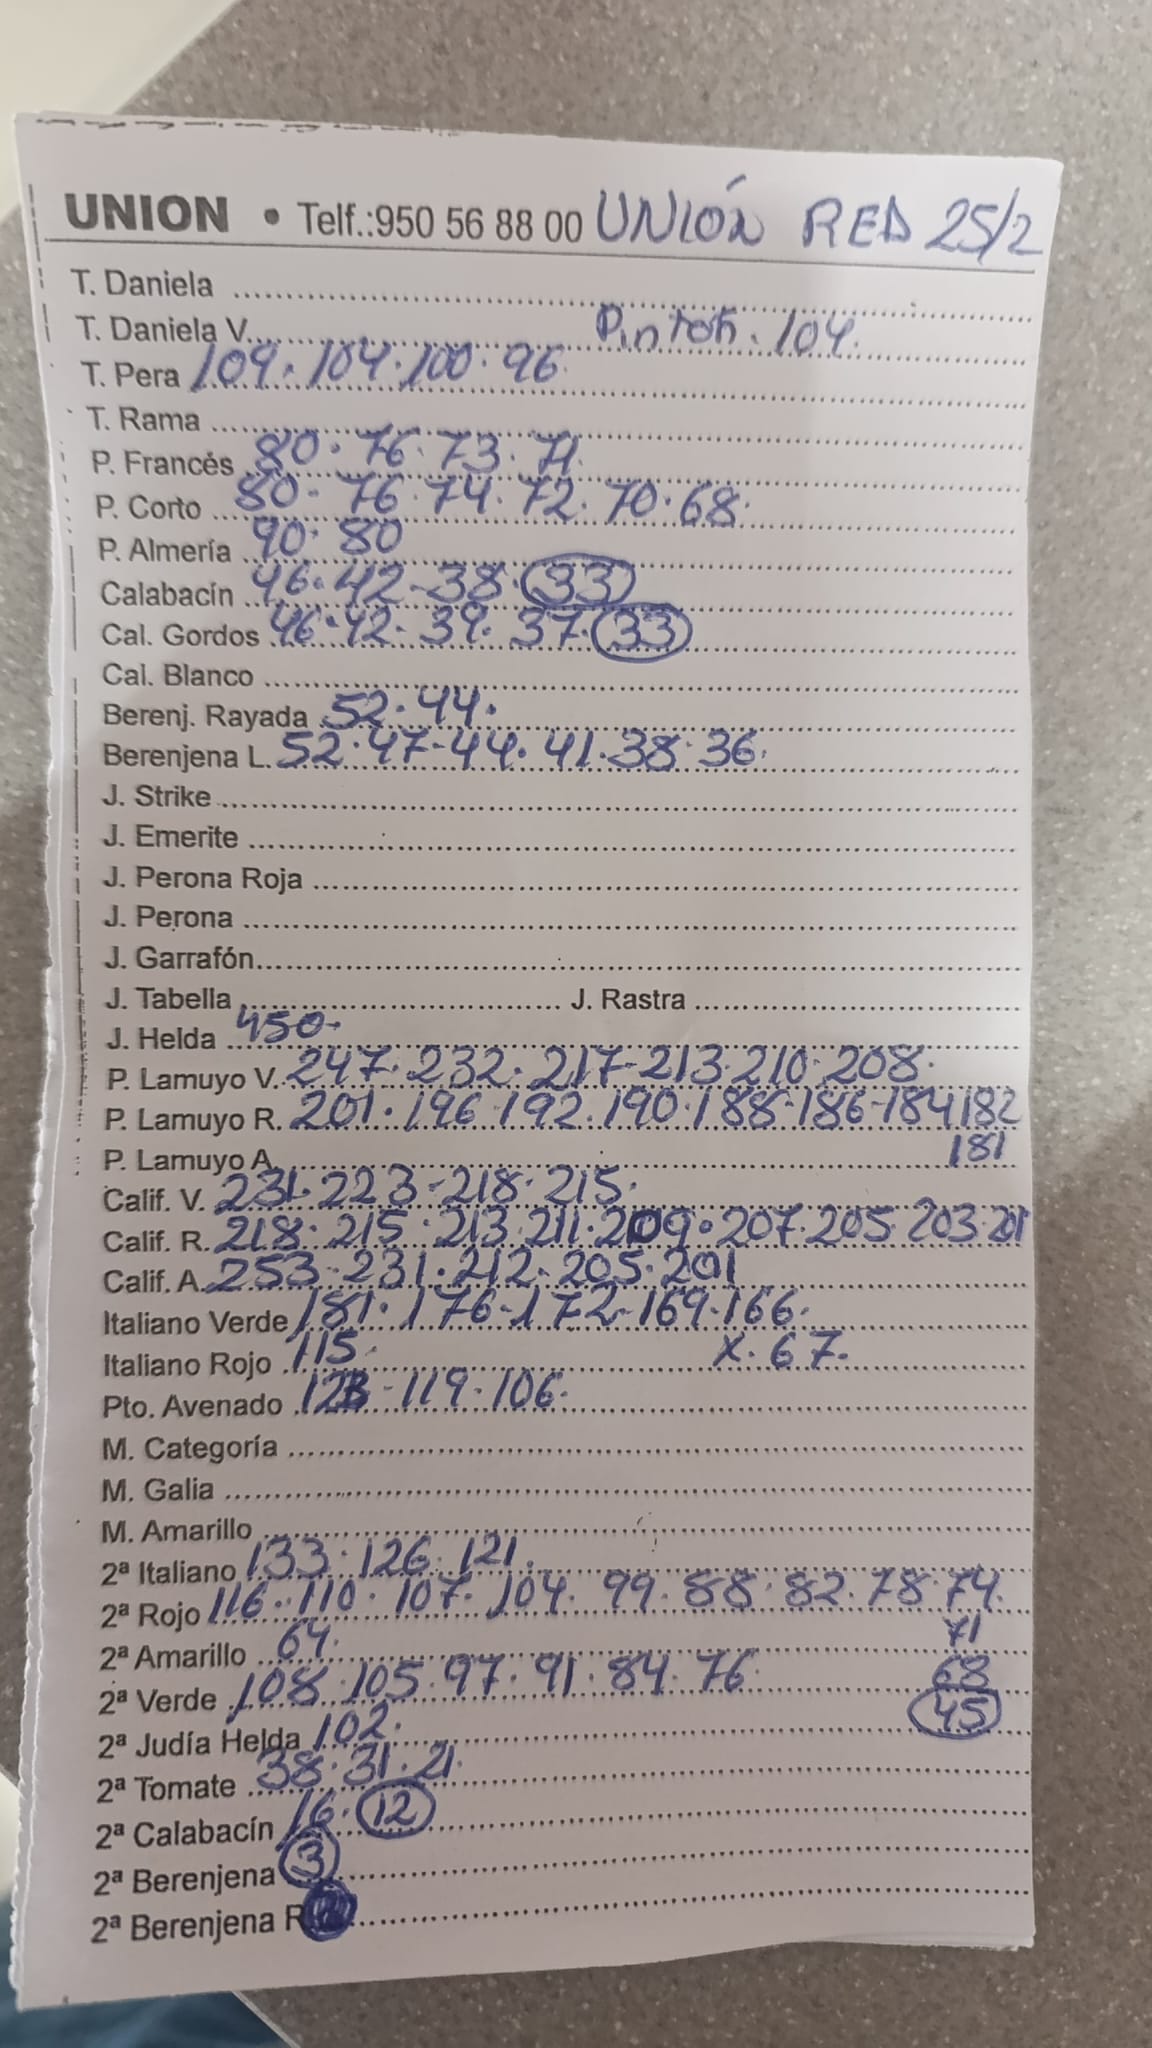 UNION • Telf.:950 56 88 00 UNIÓN RED 25/2
T. Daniela
T. Daniela V. Pinton. 104.
T. Pera 109. 104. 100. 96.
T. Rama
P. Francés 80. 76. 73. 71.
P. Corto 80- 76. 74. 72. 70. 68.
P. Almería 90. 80
Calabacín 46. 42-38. 33
Cal. Gordos 46. 42. 39. 37. 33
Cal. Blanco
Berenj. Rayada 52. 44.
Berenjena L. 52. 47-44. 41. 38. 36.
J. Strike
J. Emerite
J. Perona Roja
J. Perona
J. Garrafón
J. Tabella J. Rastra
J. Helda 450.
P. Lamuyo V. 247. 232. 217-213. 210. 208.
P. Lamuyo R. 201. 196. 192. 190. 188-186-184 182
P. Lamuyo A. 181
Calif. V. 231. 223-218. 215.
Calif. R. 218. 215. 213. 211. 209. 207. 205 203. 201
Calif. A. 253-231. 212-205. 201
Italiano Verde 181. 176-172-169. 166.
Italiano Rojo 115. X. 67.
Pto. Avenado 123-119. 106.
M. Categoría
M. Galia
M. Amarillo
2ª Italiano 133. 126. 121.
2ª Rojo 116. 110. 107. 104. 99. 88. 82. 78. 74.
2ª Amarillo 64. 71
2ª Verde 108. 105. 97. 91. 84. 76. 68
2ª Judía Helda 102. 45
2ª Tomate 38. 31. 21.
2ª Calabacín 16. 12
2ª Berenjena 3
2ª Berenjena R